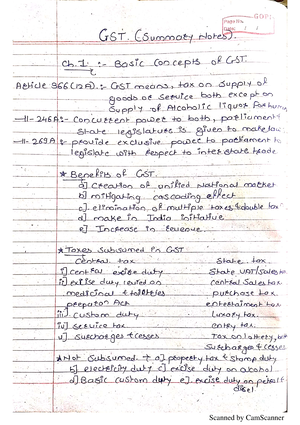 GDPL
Page No.
Date: / /
GST. (Summary Notes).
Ch.1 :- Basic Concepts of GST.
Article 366(12A) :- GST means, tax on supply of
goods or service both except on
supply of Alcoholic liquor for human
—||— 246A :- Concurrent power to both, parliament
State legislature is given to make law
—||— 269A :- provide exclusive power to parliament to
legislate with respect to inter state trade
* Benefits of GST.
a] Creation of unified National market
b] mitigating cascading effect
c] elimination of multiple taxes & double tax
d] make in India initiative
e] Increase in revenue.
* Taxes Subsumed in GST
Central tax State tax
i] central excise duty State VAT/Sales tax
ii] excise duty levied on Central Sales tax
medicinal & toiletries purchase tax
prepration Act entertainment tax
iii] Custom duty Luxury tax.
iv] service tax entry tax.
v] Surcharges & cesses Tax on lottery, bet
Surcharges & cesses
* Not Subsumed → a] property tax & Stamp duty
b] electricity duty c] excise duty on alcohol
d] Basic custom duty e]. excise duty on petrol
disel
Scanned by CamScanner